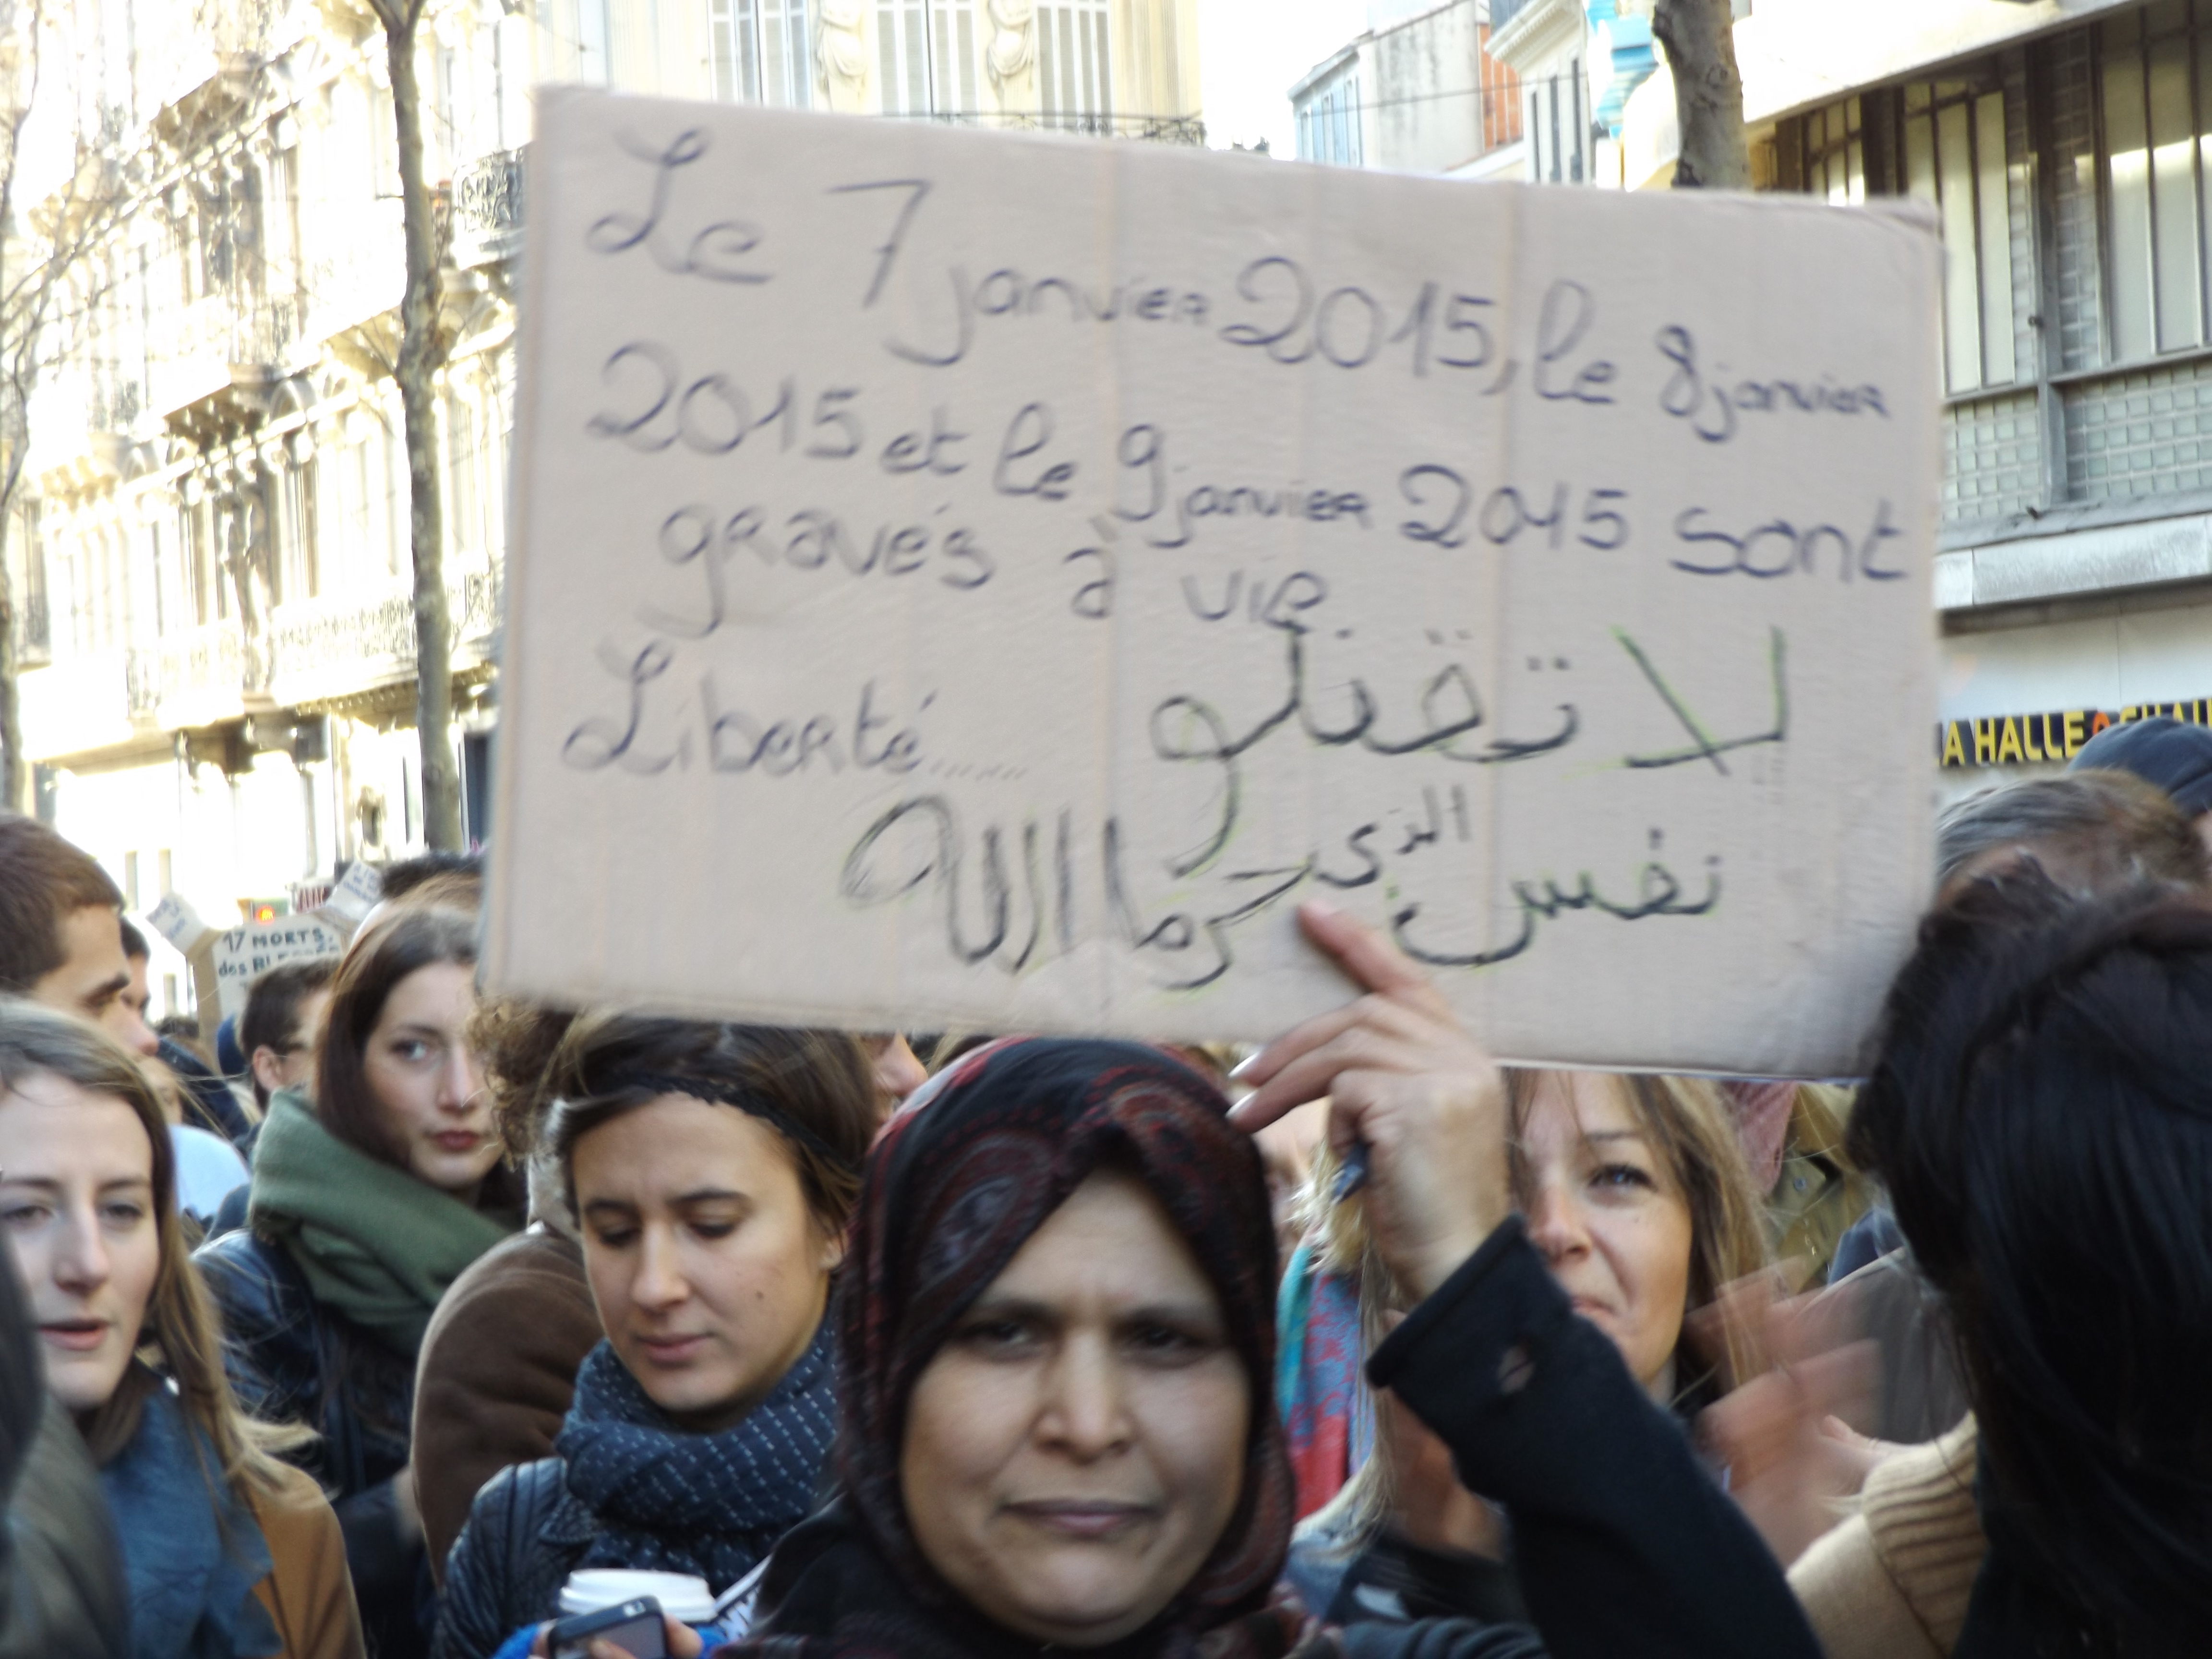 Le 7 janvier 2015, le 8 janvier
2015 et le 9 janvier 2015 sont
gravés à vie
Liberté...... لا تقتلو
نفس الذي حرما الله
17 MORTS.
des
A HALLE